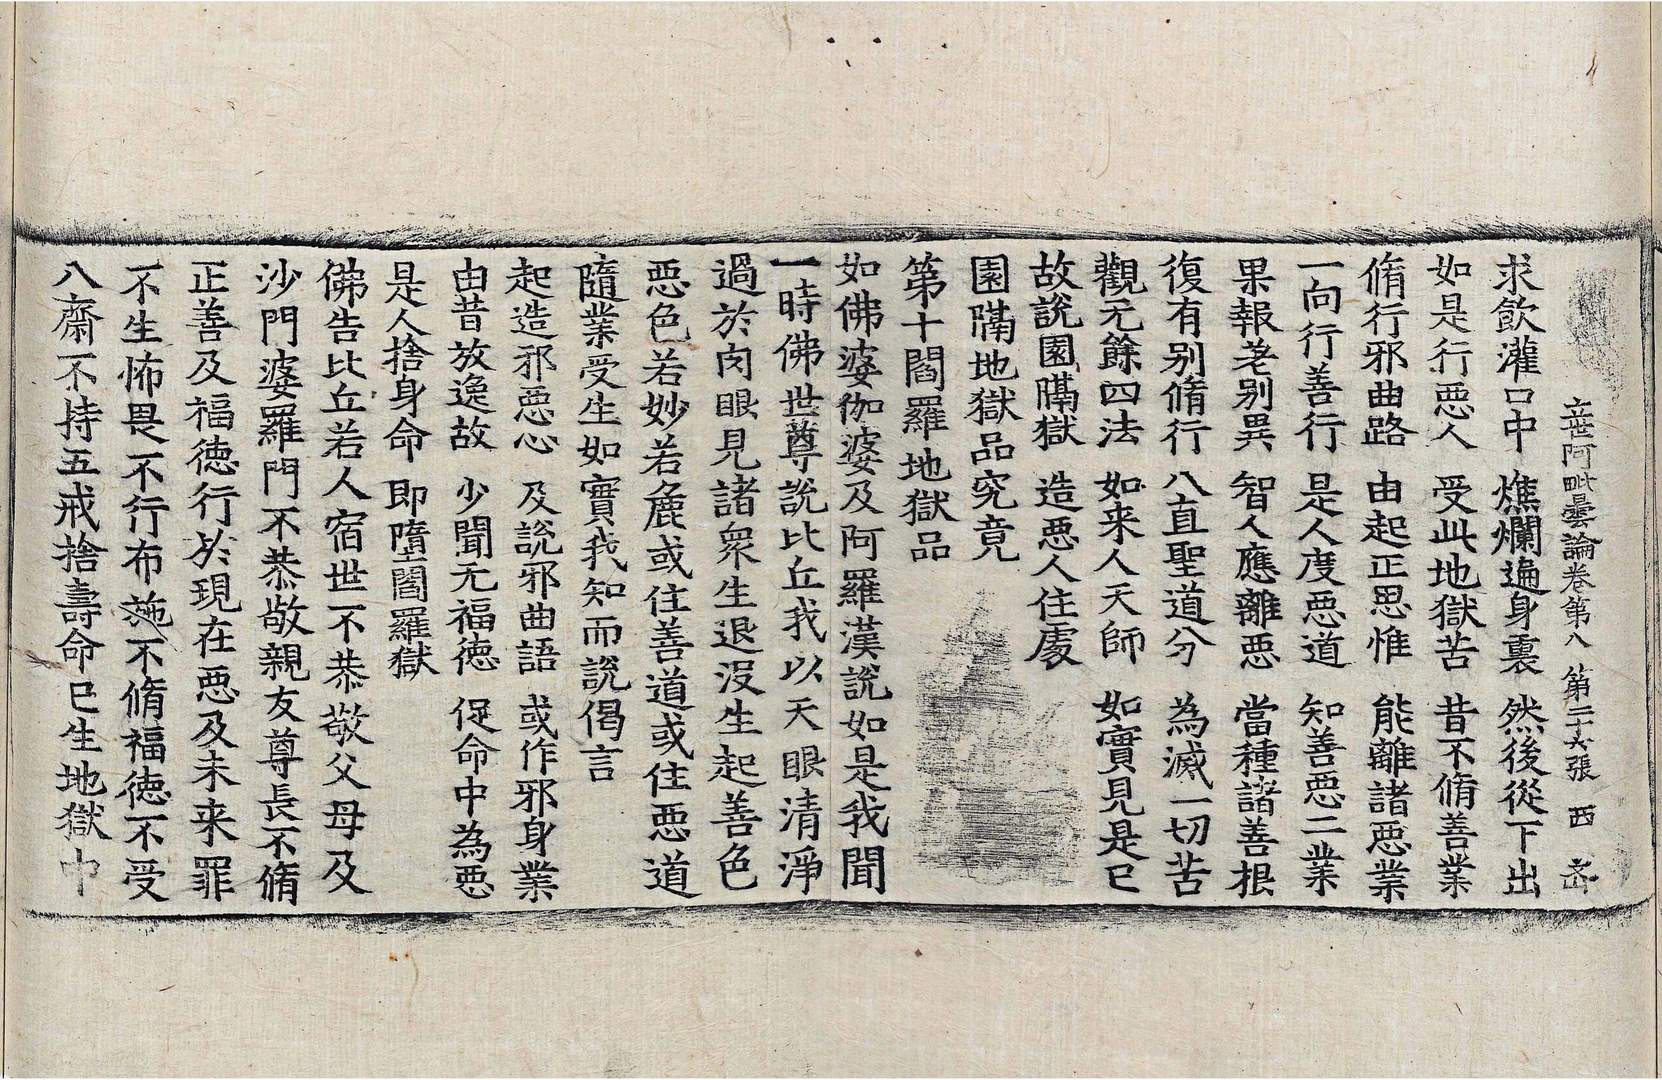 立世阿毗曇論卷第八 第二十六張 西
求飲灌口中 燋爛遍身裏 然後從下出
如是行惡人 受此地獄苦 昔不脩善業
脩行邪曲路 由起正思惟 能離諸惡業
一向行善行 是人度惡道 知善惡二業
果報差別異 智人應離惡 當種諸善根
復有別脩行 八直聖道分 為滅一切苦
觀无餘四法 如来人天師 如實見是已
故說園隔地獄 造惡人住處
園隔地獄品究竟
第十閻羅地獄品
如佛婆伽婆及阿羅漢說如是我聞
一時佛世尊說比丘我以天眼清淨
過於肉眼見諸眾生退沒生起善色
惡色若妙若麁或住善道或住惡道
隨業受生如實我知而說偈言
起造邪惡心 及說邪曲語 或作邪身業
由昔放逸故 少聞无福德 促命中為惡
是人捨身命 即墮閻羅獄
佛告比丘若人宿世不恭敬父母及
沙門婆羅門不恭敬親友尊長不脩
正善及福德行於現在惡及未来罪
不生怖畏不行布施不脩福德不受
八齋不持五戒捨壽命已生地獄中